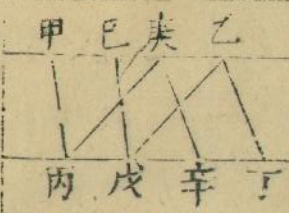 甲巳庚乙
丙戊辛丁